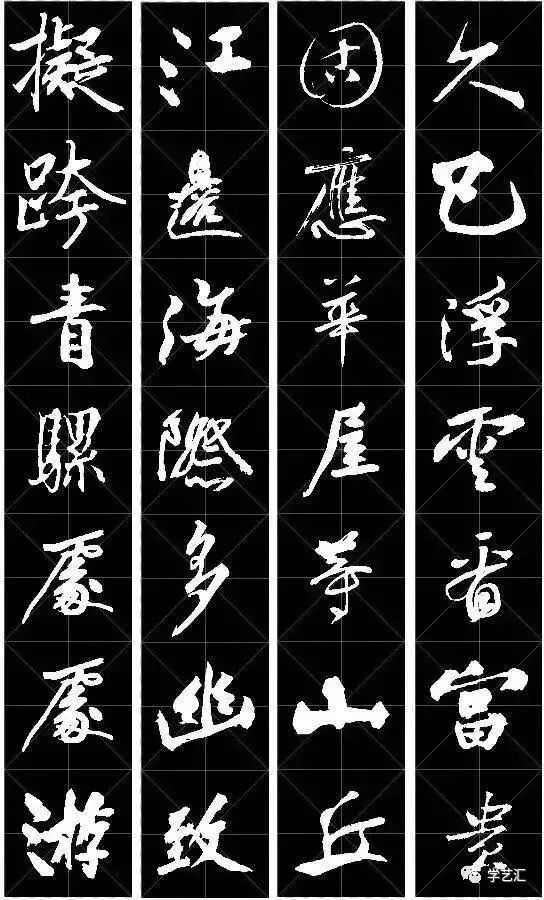 久已浮雲看富貴
固應華屋等山丘
江邊海際多幽致
擬跨青騾處處游
学艺汇